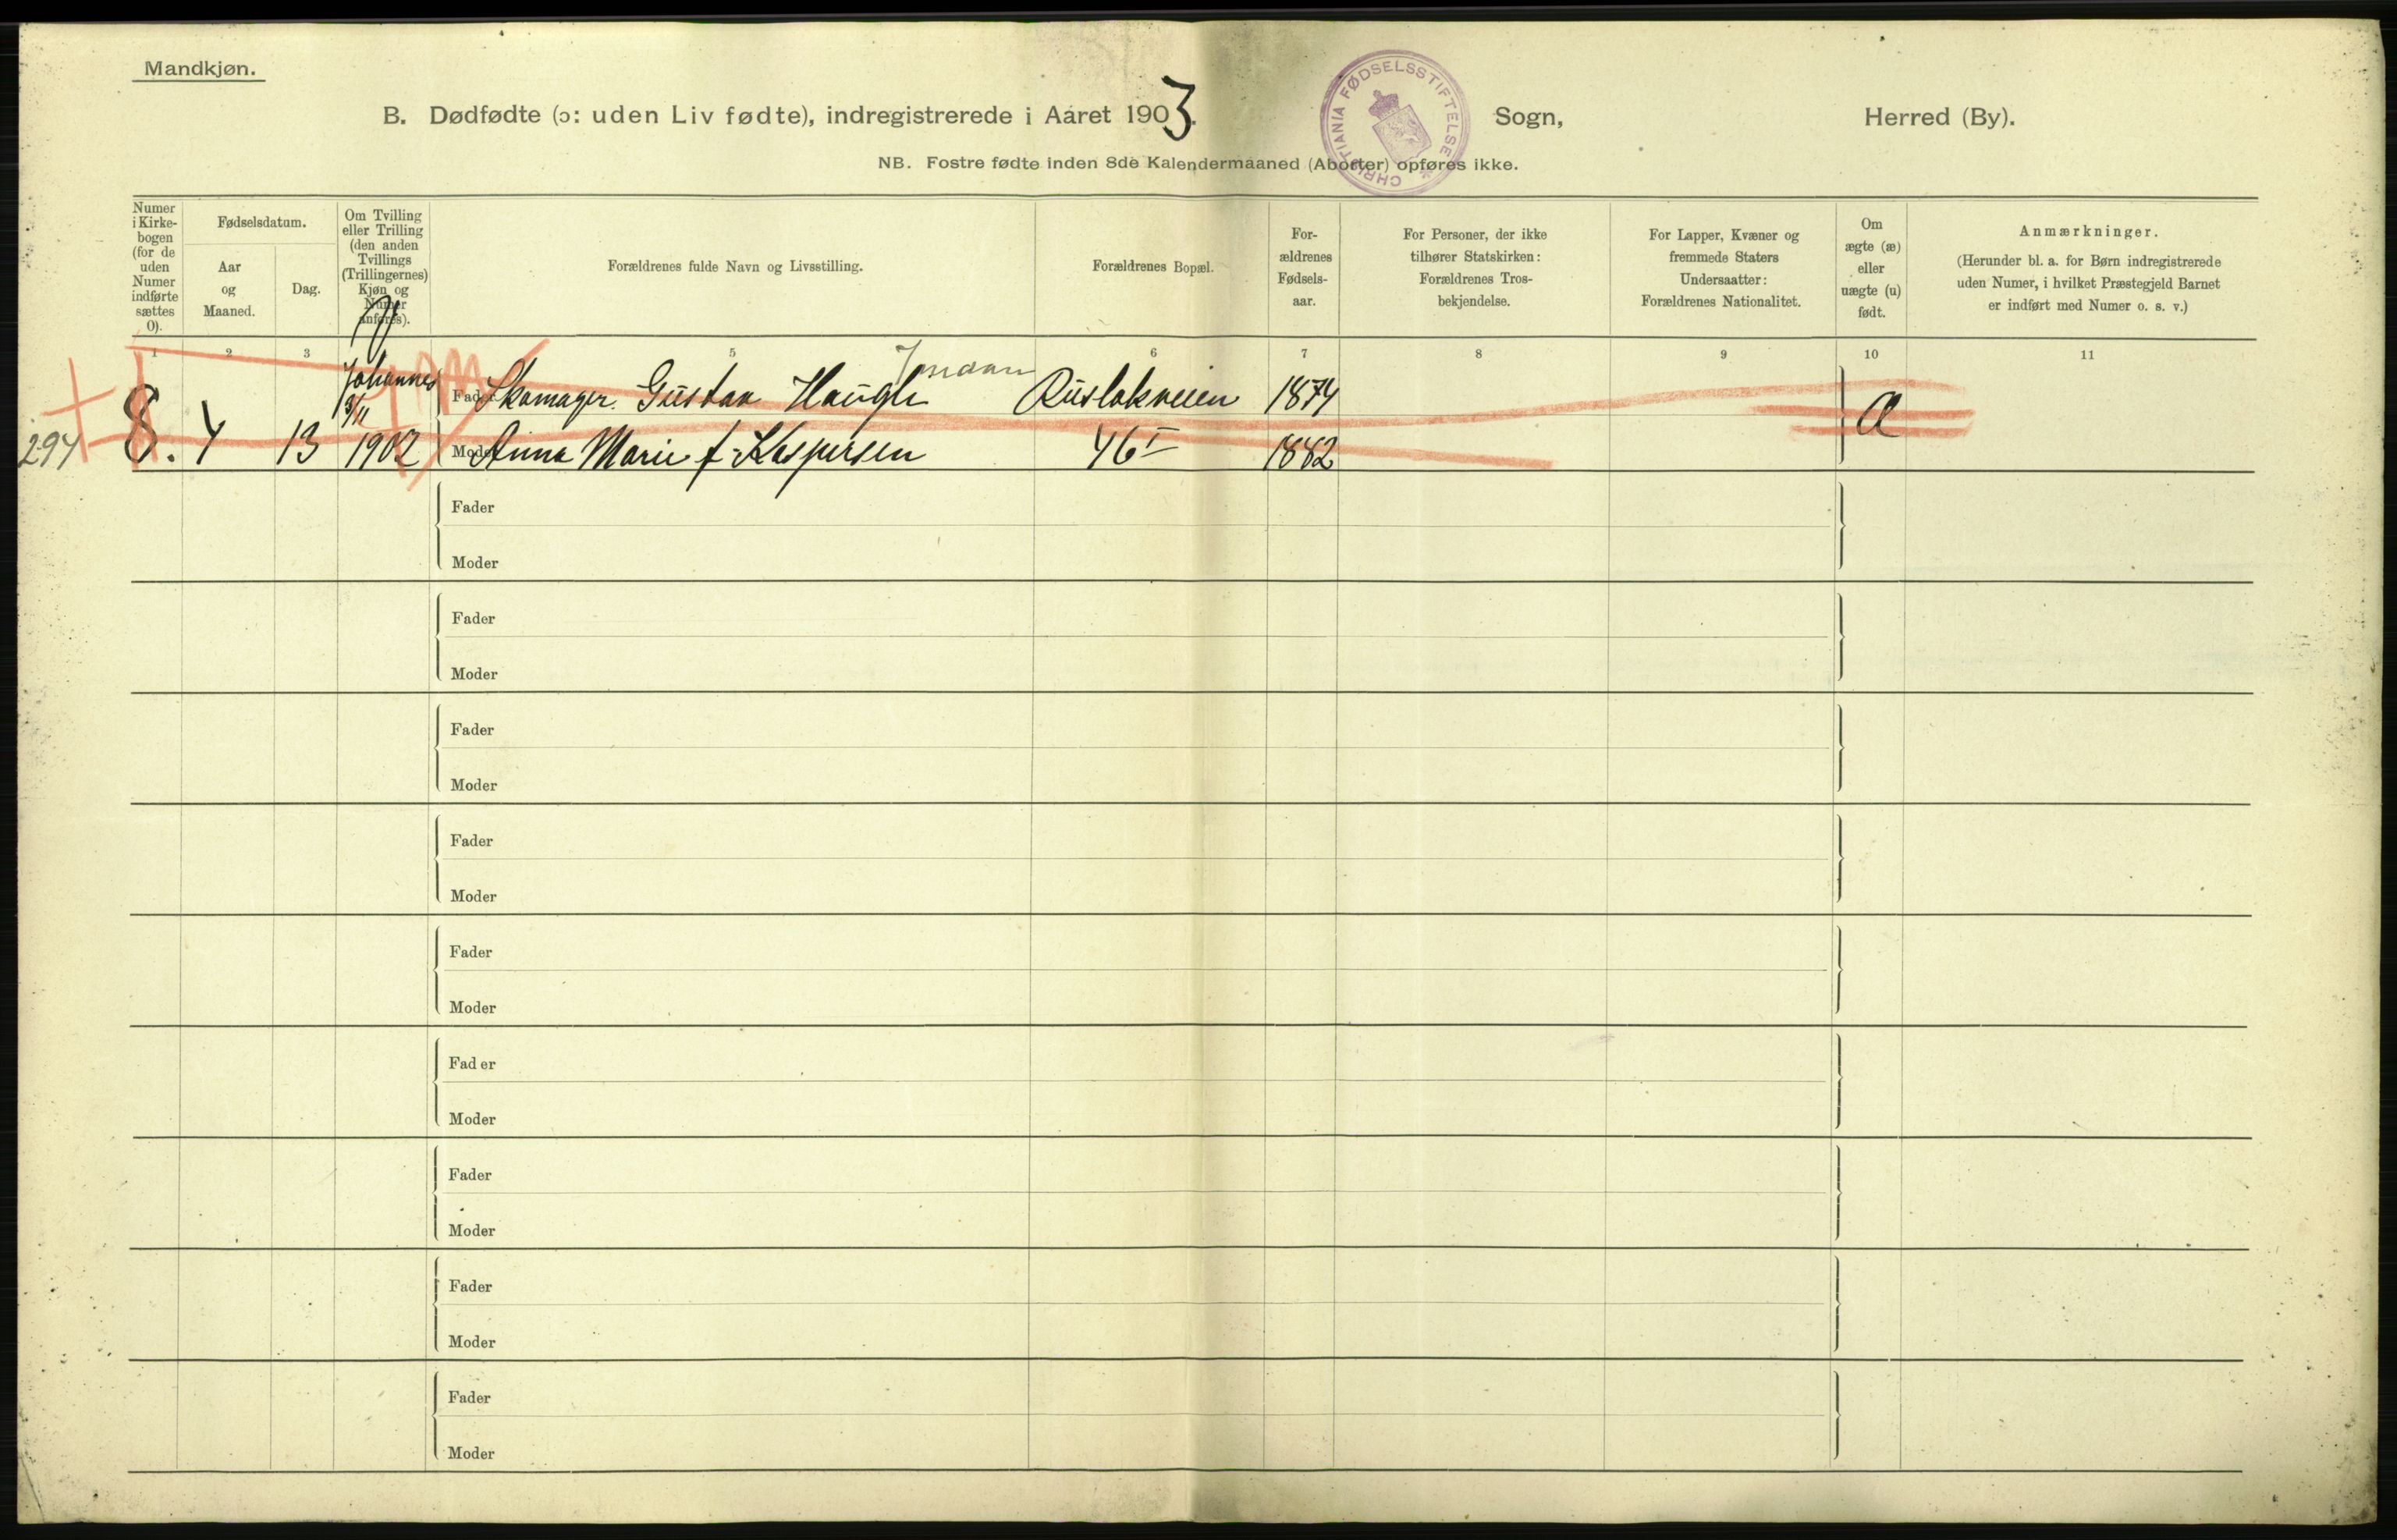 Mandkjøn.
B. Dødfødte (ɔ: uden Liv fødte), indregistrerede i Aaret 1903. Sogn, Herred (By).
CHRISTIANIA FØDSELSSTIFTELSE *
NB. Fostre fødte inden 8de Kalendermaaned (Aborter) opføres ikke.
Numer
i Kirke-
bogen
(for de
uden
Numer
indførte
sættes
0).
Fødselsdatum.
Aar
og
Maaned.
Dag.
Om Tvilling
eller Trilling
(den anden
Tvillings
(Trillingernes)
Kjøn og
Numer
anføres).
Forældrenes fulde Navn og Livsstilling.
Forældrenes Bopæl.
For-
ældrenes
Fødsels-
aar.
For Personer, der ikke
tilhører Statskirken:
Forældrenes Tros-
bekjendelse.
For Lapper, Kvæner og
fremmede Staters
Undersaatter:
Forældrenes Nationalitet.
Om
ægte (æ)
eller
uægte (u)
født.
Anmærkninger.
(Herunder bl. a. for Børn indregistrerede
uden Numer, i hvilket Præstegjeld Barnet
er indført med Numer o. s. v.)
1 2 3 5 6 7 8 9 10 11
Johannes
Fader Skomager Gustav Haugli Rusløkveien 1874
294 8. 4 13 1902 Moder Anna Marie f. Kaspersen 46 I 1882
Fader
Moder
Fader
Moder
Fader
Moder
Fader
Moder
Fader
Moder
Fader
Moder
Fader
Moder
Fader
Moder
Fader
Moder